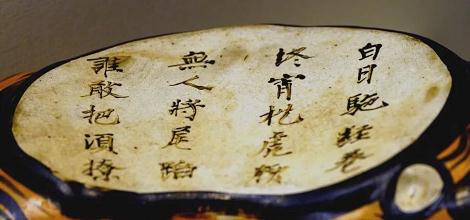 白日駞經卷
終宵枕虎腰
無人將尾蹈
誰敢把湏撩